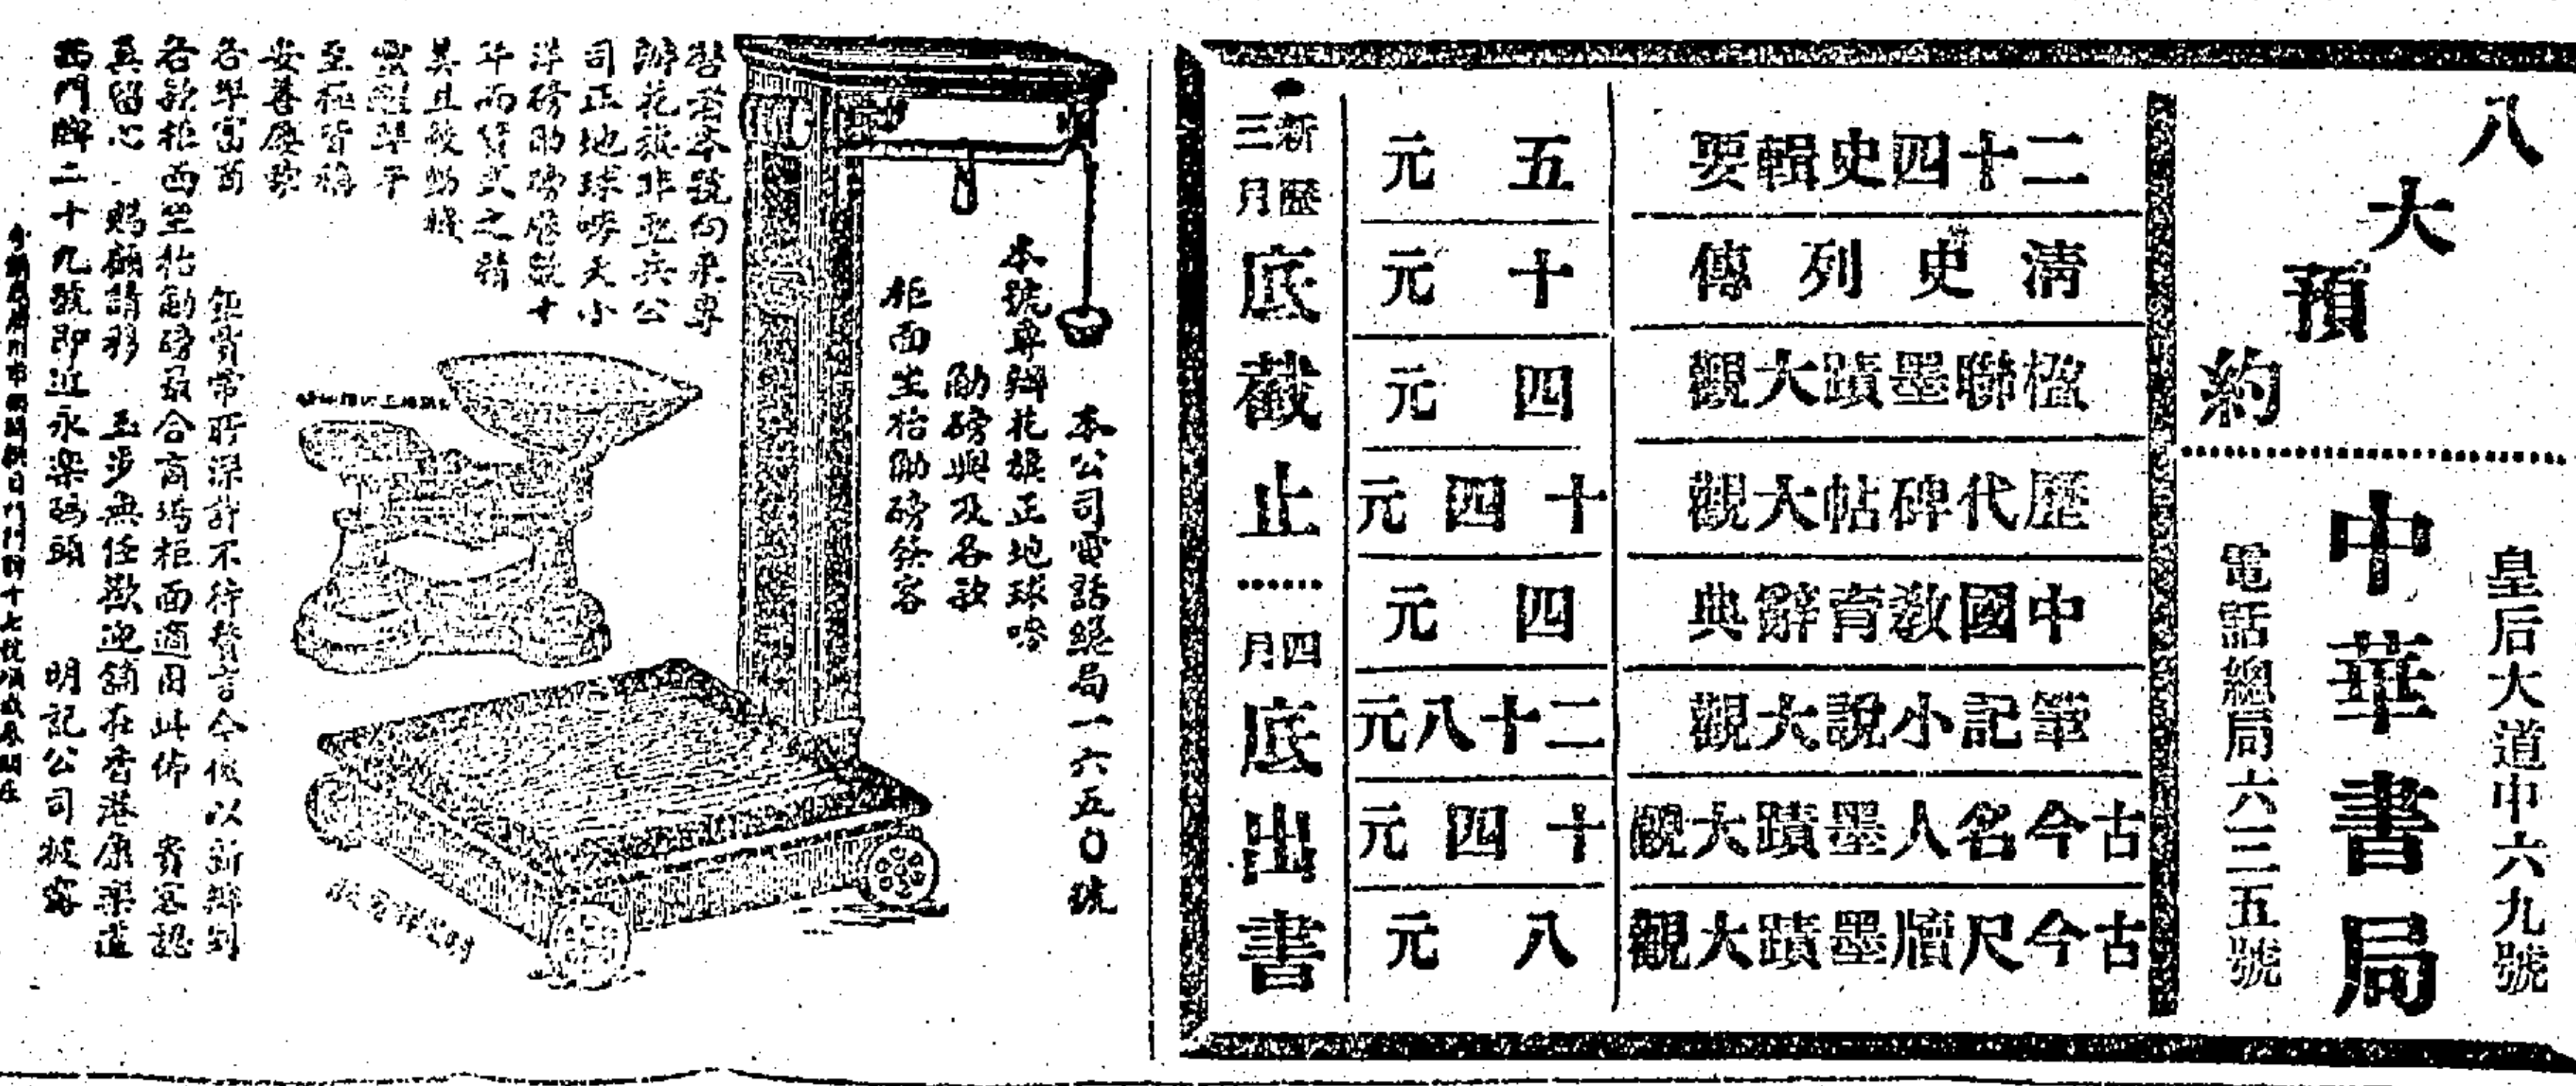 八大預約
皇后大道中六九號
中華書局
電話總局六三五號
二十四史輯要
五元
清史列傳
十元
楹聯墨蹟大觀
四元
歷代碑帖大觀
十四元
中國教育辭典
四元
筆記小說大觀
二十八元
古今名人墨蹟大觀
十四元
古今尺牘墨蹟大觀
八元
新歷三月底截止
四月底出書
本公司電話總局一六五〇號
本號專辦花旗正地球嘜
觔磅與及各款
柜面生枱觔磅
啓者本號向來專
辦花旗
司正地球嘜大小
洋磅觔磅歷數十
年而貨式之精
至極皆稱
不待贅言今復以新辦到
各款柜面生枱觔磅最合商場柜面適用此佈 貴客認
真留心 賜顧請移 玉步無任歡迎舖在香港康樂道
西門牌二十九號即近永樂碼頭 明記公司